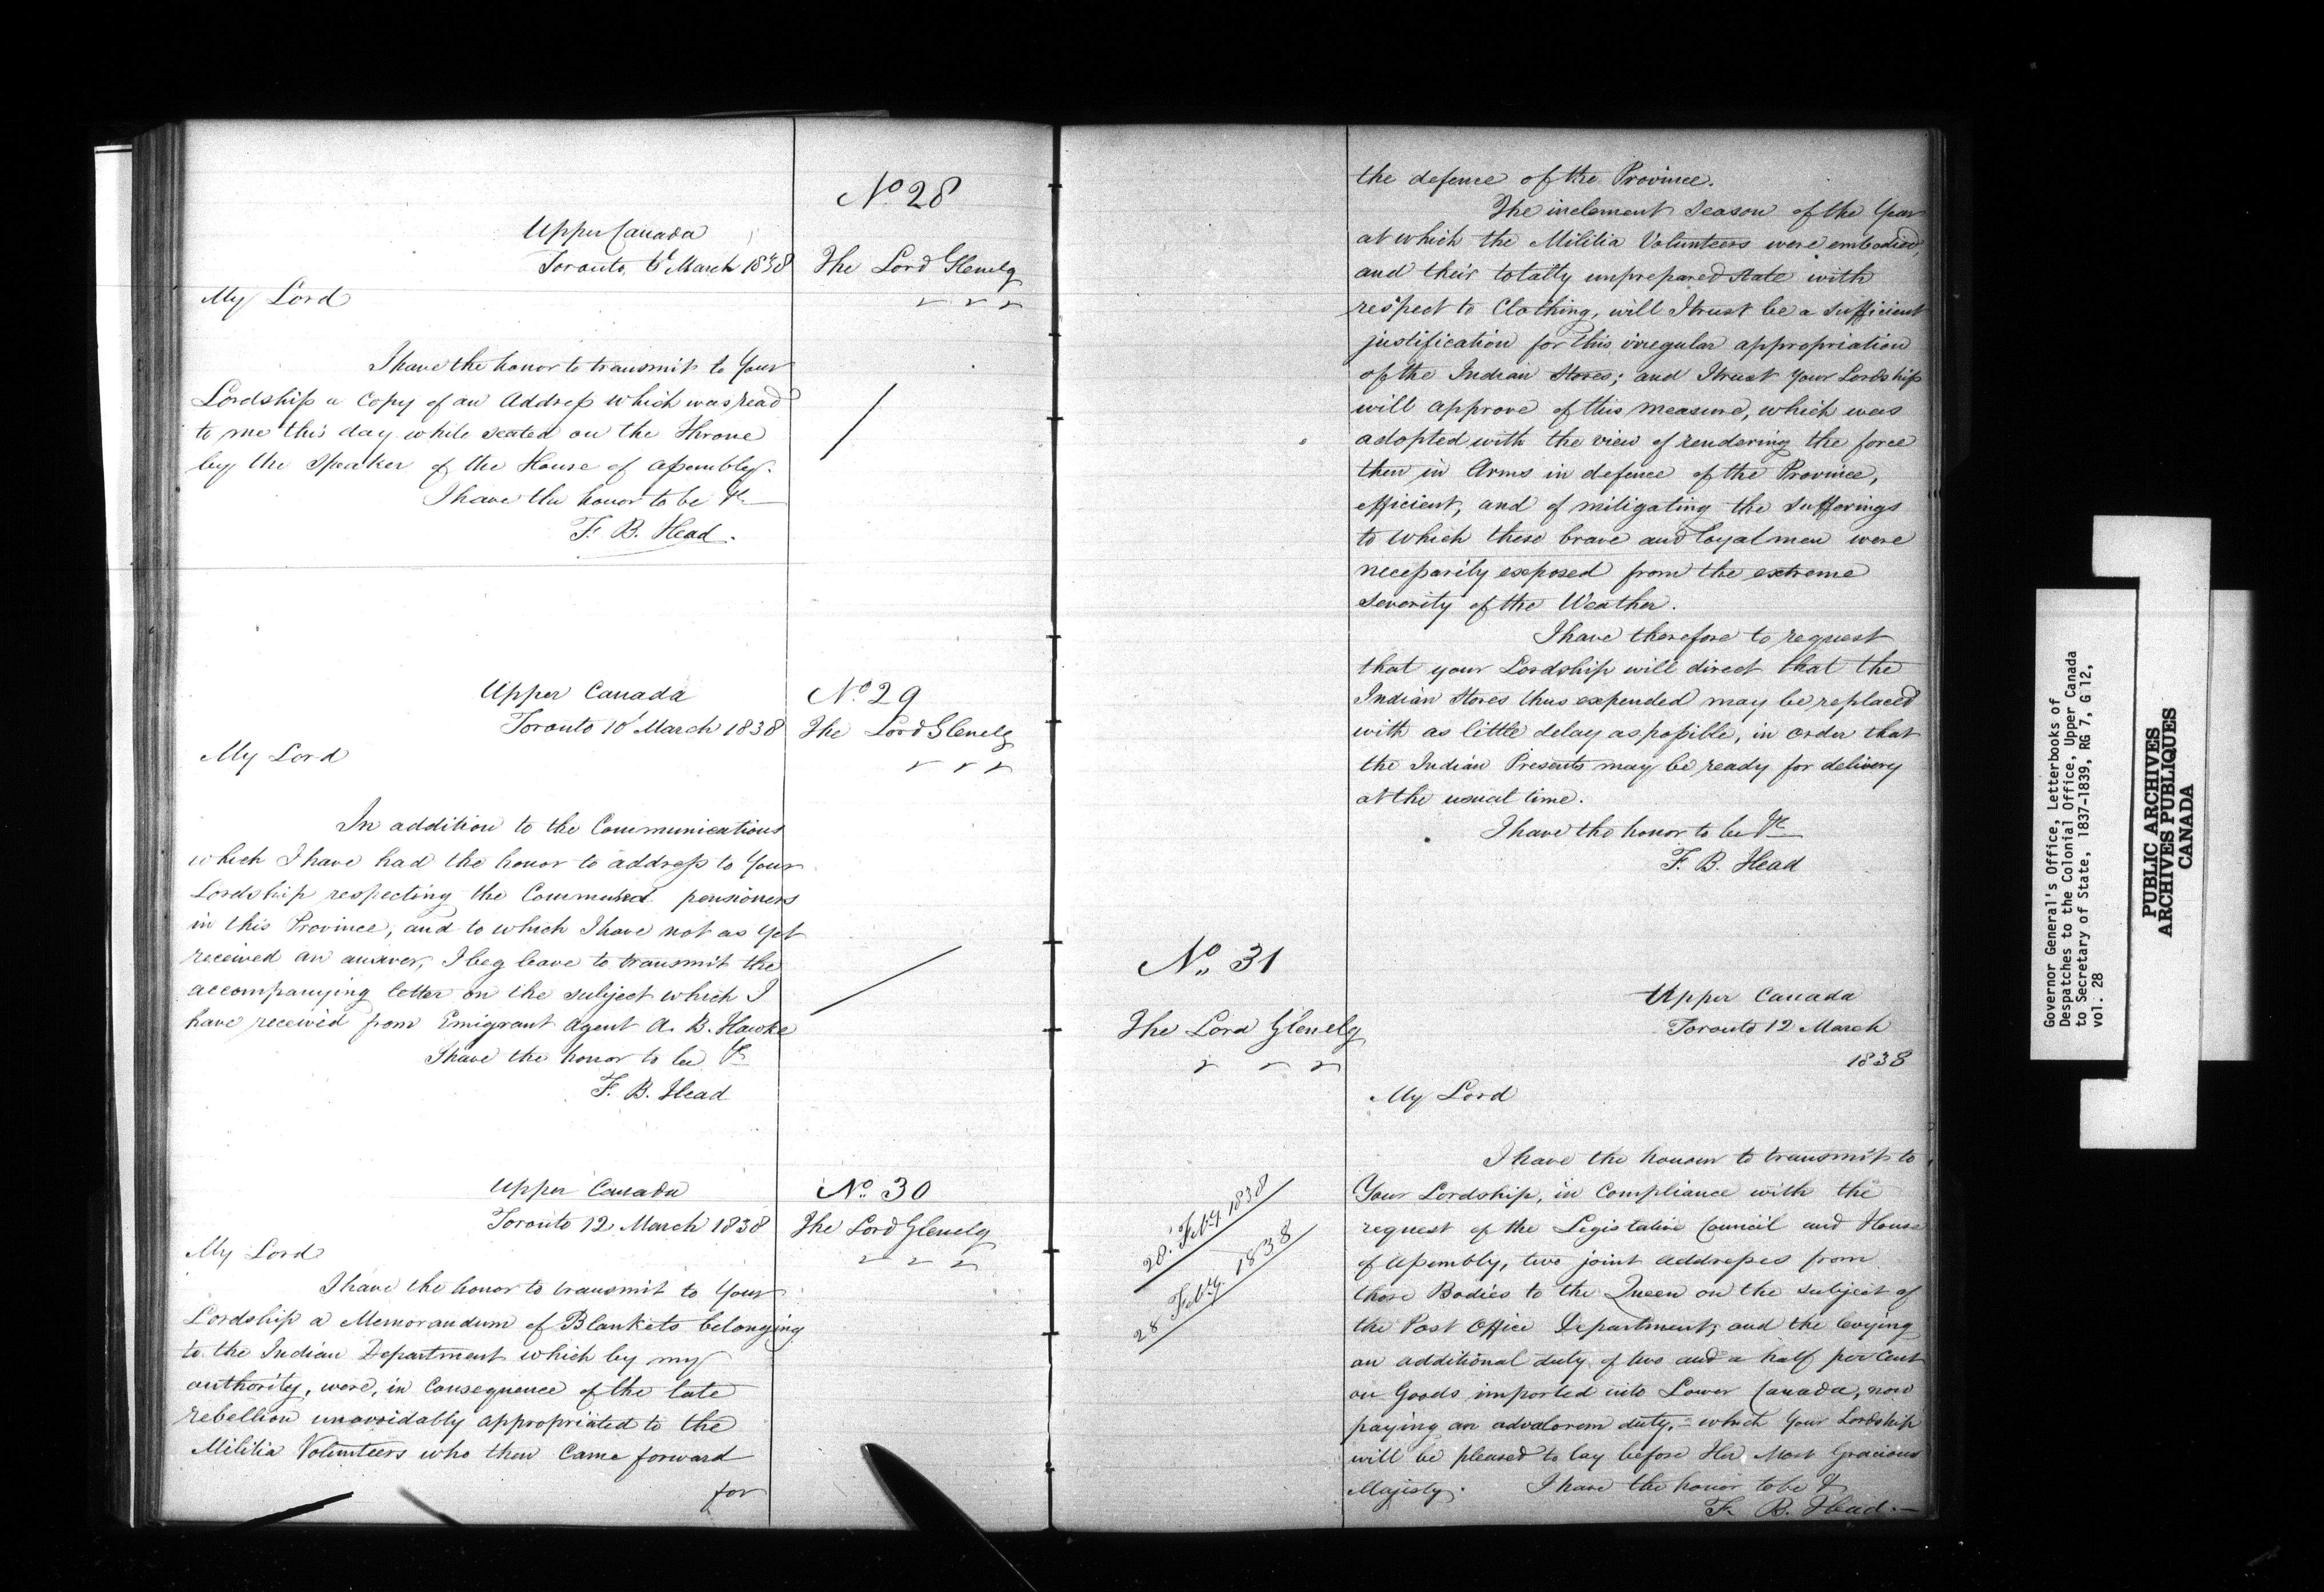 No 28
Upper Canada
Toronto, 6th March 1838
The Lord Glenelg
My Lord
I have the honor to transmit to Your
Lordship a Copy of an Address which was read
to me this day while seated on the Throne
by the Speaker of the House of Assembly.
I have the honor to be &c
F. B. Head.
Upper Canada
No 29
Toronto 10th March 1838
The Lord Glenelg
My Lord
In addition to the Communications
which I have had the honor to address to Your
Lordship respecting the Commuted pensioners
in this Province, and to which I have not as yet
received an answer, I beg leave to transmit the
accompanying letter on the subject which I
have received from Emigrant Agent A. B. Hawke
I have the honor to be &c
F. B. Head
Upper Canada
No. 30
Toronto 12 March 1838
The Lord Glenelg
My Lord
I have the honor to transmit to Your
Lordship a Memorandum of Blankets belonging
to the Indian Department which by my
authority, were, in Consequence of the late
rebellion unavoidably appropriated to the
Militia Volunteers who then Came forward
for
the defence of the Province.
The inclement season of the Year
at which the Militia Volunteers were embodied,
and their totally unprepared state with
respect to Clothing, will I trust be a sufficient
justification for this irregular appropriation
of the Indian Stores; and I trust Your Lordship
will approve of this measure, which was
adopted with the view of rendering the force
then in Arms in defence of the Province,
efficient, and of mitigating the sufferings
to which these brave and loyal men were
necessarily exposed from the extreme
severity of the Weather.
I have therefore to request
that your Lordship will direct that the
Indian Stores thus expended may be replaced
with as little delay as possible, in order that
the Indian Presents may be ready for delivery
at the usual time.
I have the honor to be &c
F. B. Head
No. 31
Upper Canada
The Lord Glenelg
Toronto 12 March
1838
My Lord
I have the honour to transmit to
Your Lordship, in Compliance with the
request of the Legislative Council and House
of Assembly, two joint addresses from
those Bodies to the Queen on the subject of
the Post Office Department, and the levying
an additional duty of two and a half per Cent
on Goods imported into Lower Canada, now
paying an advalorem duty, - which Your Lordship
will be pleased to lay before Her Most Gracious
Majesty. I have the honor to be &c
F. B. Head. -
28. Feby. 1838
28 Feby. 1838
Governor General's Office, Letterbooks of
Despatches to the Colonial Office, Upper Canada
to Secretary of State, 1837-1839, RG 7, G 12,
vol. 28
PUBLIC ARCHIVES
ARCHIVES PUBLIQUES
CANADA